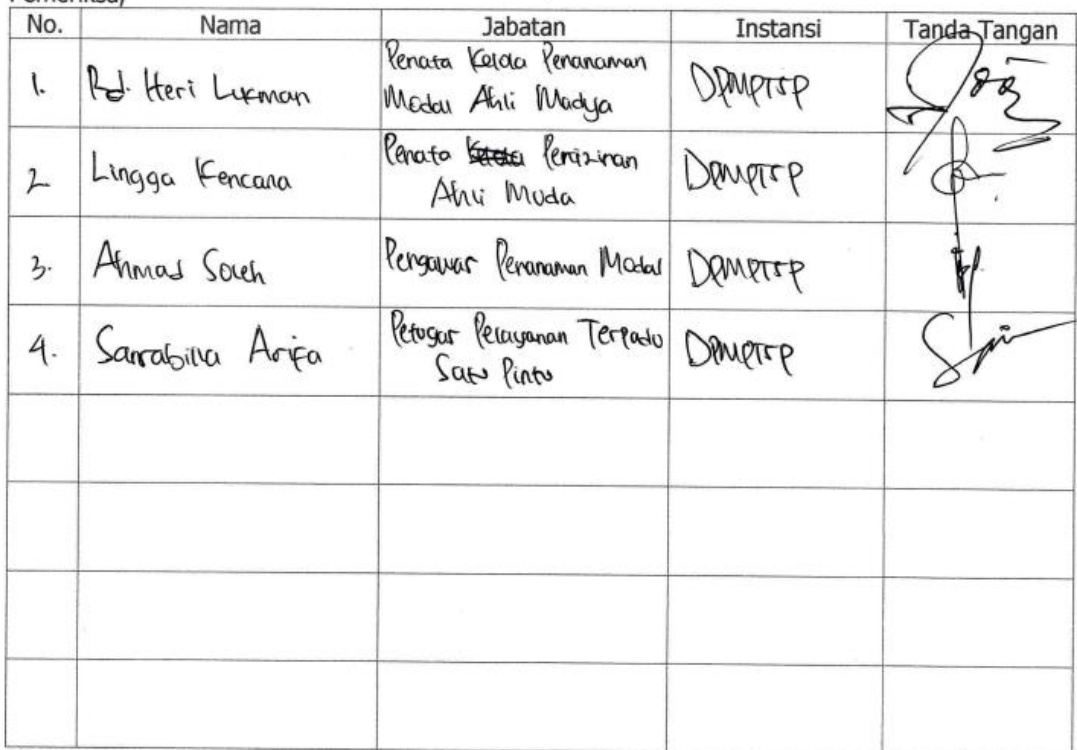 No. Nama Jabatan Instansi Tanda Tangan
1. Rd. Heri Lukman Penata Kelola Penanaman Modal Ahli Madya DPMPTSP
2 Lingga Kencana Penata Perizinan Ahli Muda DPMPTSP
3. Ahmad Soleh Pengawas Penanaman Modal DPMPTSP
4. Sansabilla Arifa Petugas Pelayanan Terpadu Satu Pintu DPMPTSP